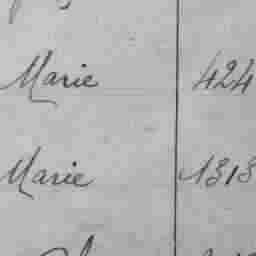 Marie 424
Marie 1313